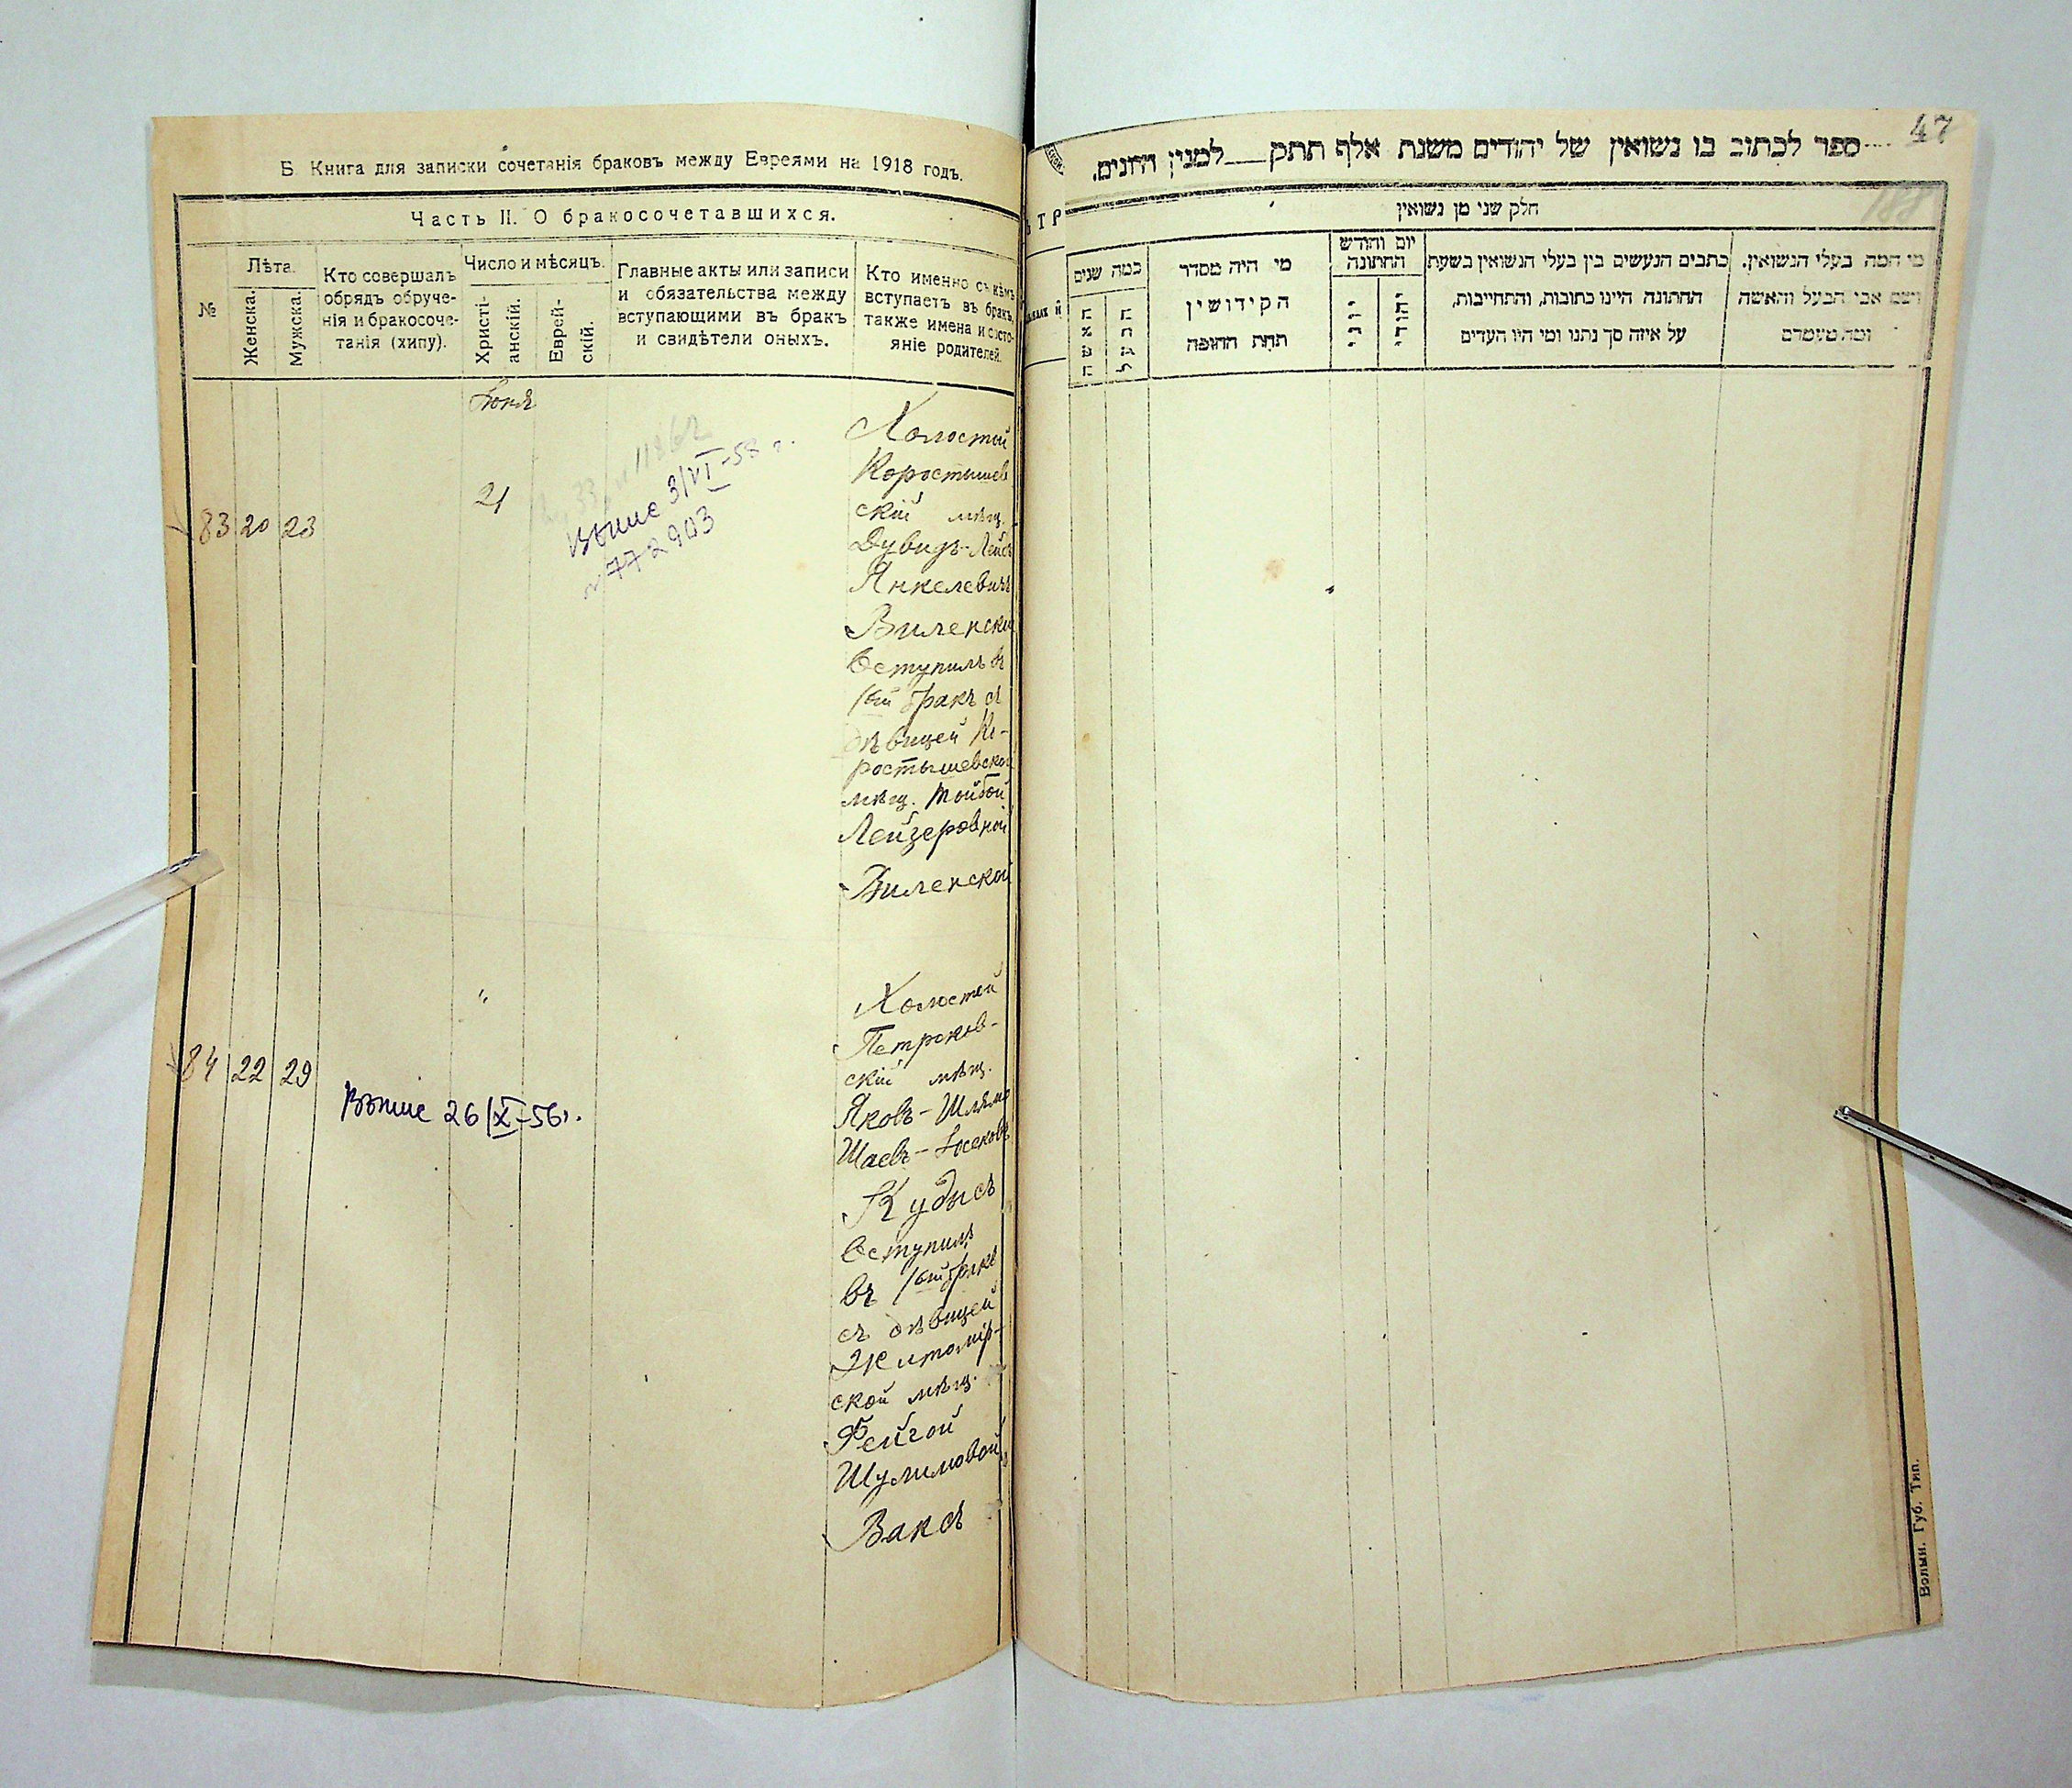 Б. Книга для записки сочетанія браковъ между Евреями на 1918 годъ.
Часть II. О бракосочетавшихся.
№
Лѣта.
Женска.
Мужска.
Кто совершалъ
обрядъ обруче-
нія и бракосоче-
танія (хипу).
Число и мѣсяцъ.
Христі-
анскій.
Еврей-
скій.
Главные акты или записи
и обязательства между
вступающими въ бракъ
и свидѣтели оныхъ.
Кто именно съ кѣмъ
вступаетъ въ бракъ,
также имена и состо-
яніе родителей.
Іюня
83 20 23
21
Выпис 3/VI-58 г.
№ 772903
Холостой
Коростышев
скій мѣщ.
Дувидъ-Лейб
Янкелевичъ
Виленскій
вступилъ въ
1ый бракъ съ
дѣвицей Ко-
ростышевской
мѣщ. Тойбой
Лейзеровной
Виленской
84 22 29
"
Выпис 26/X-56 г.
Холостой
Петроков-
скій мѣщ.
Яковъ-Шлема
Шаевъ-Іосековъ
Кудысъ
вступилъ
въ 1ый бракъ
съ дѣвицей
Житомір-
ской мѣщ.
Фейгой
Шулимовой
Ваксъ
47
188
ספר לכתוב בו נשואין של יהודים משנת אלף תתק___למנין היונים.
חלק שני מן נשואין
כמה שנים
האשה
הבעל
מי היה מסדר
הקידושין
תחת החופה
יום וחודש
החתונה
יוני
יהודי
כתבים הנעשים בין בעלי הנשואין בשעת
החתונה היינו כתובות, והתחייבות,
על איזה סך נתנו ומי היו העדים
מי המה בעלי הנשואין.
ושם אבי הבעל והאשה
ומה מעמדם
Волын. Губ. Тип.